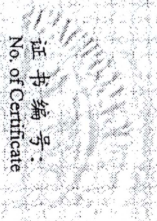 证书编号：
No. of Certificate